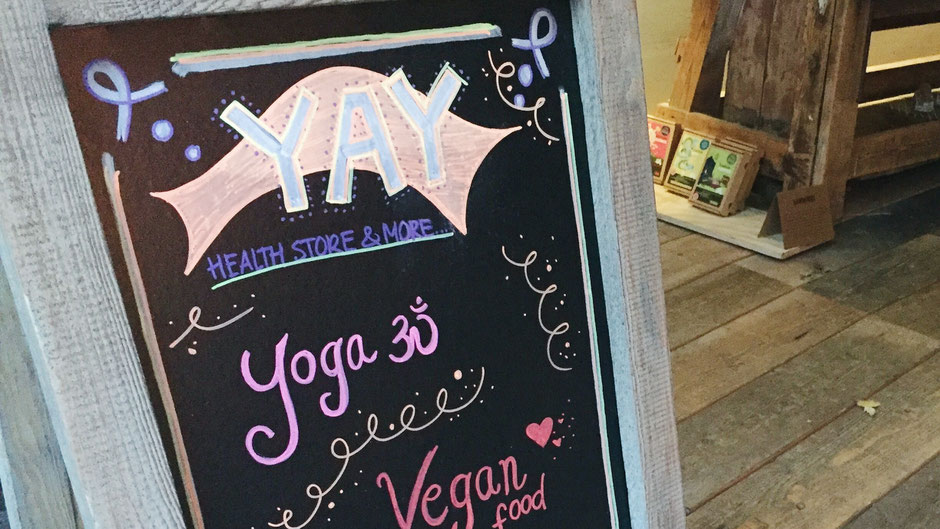 YAY
HEALTH STORE & MORE...
Yoga ॐ
Vegan
food